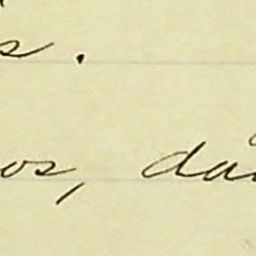 s.
os, da